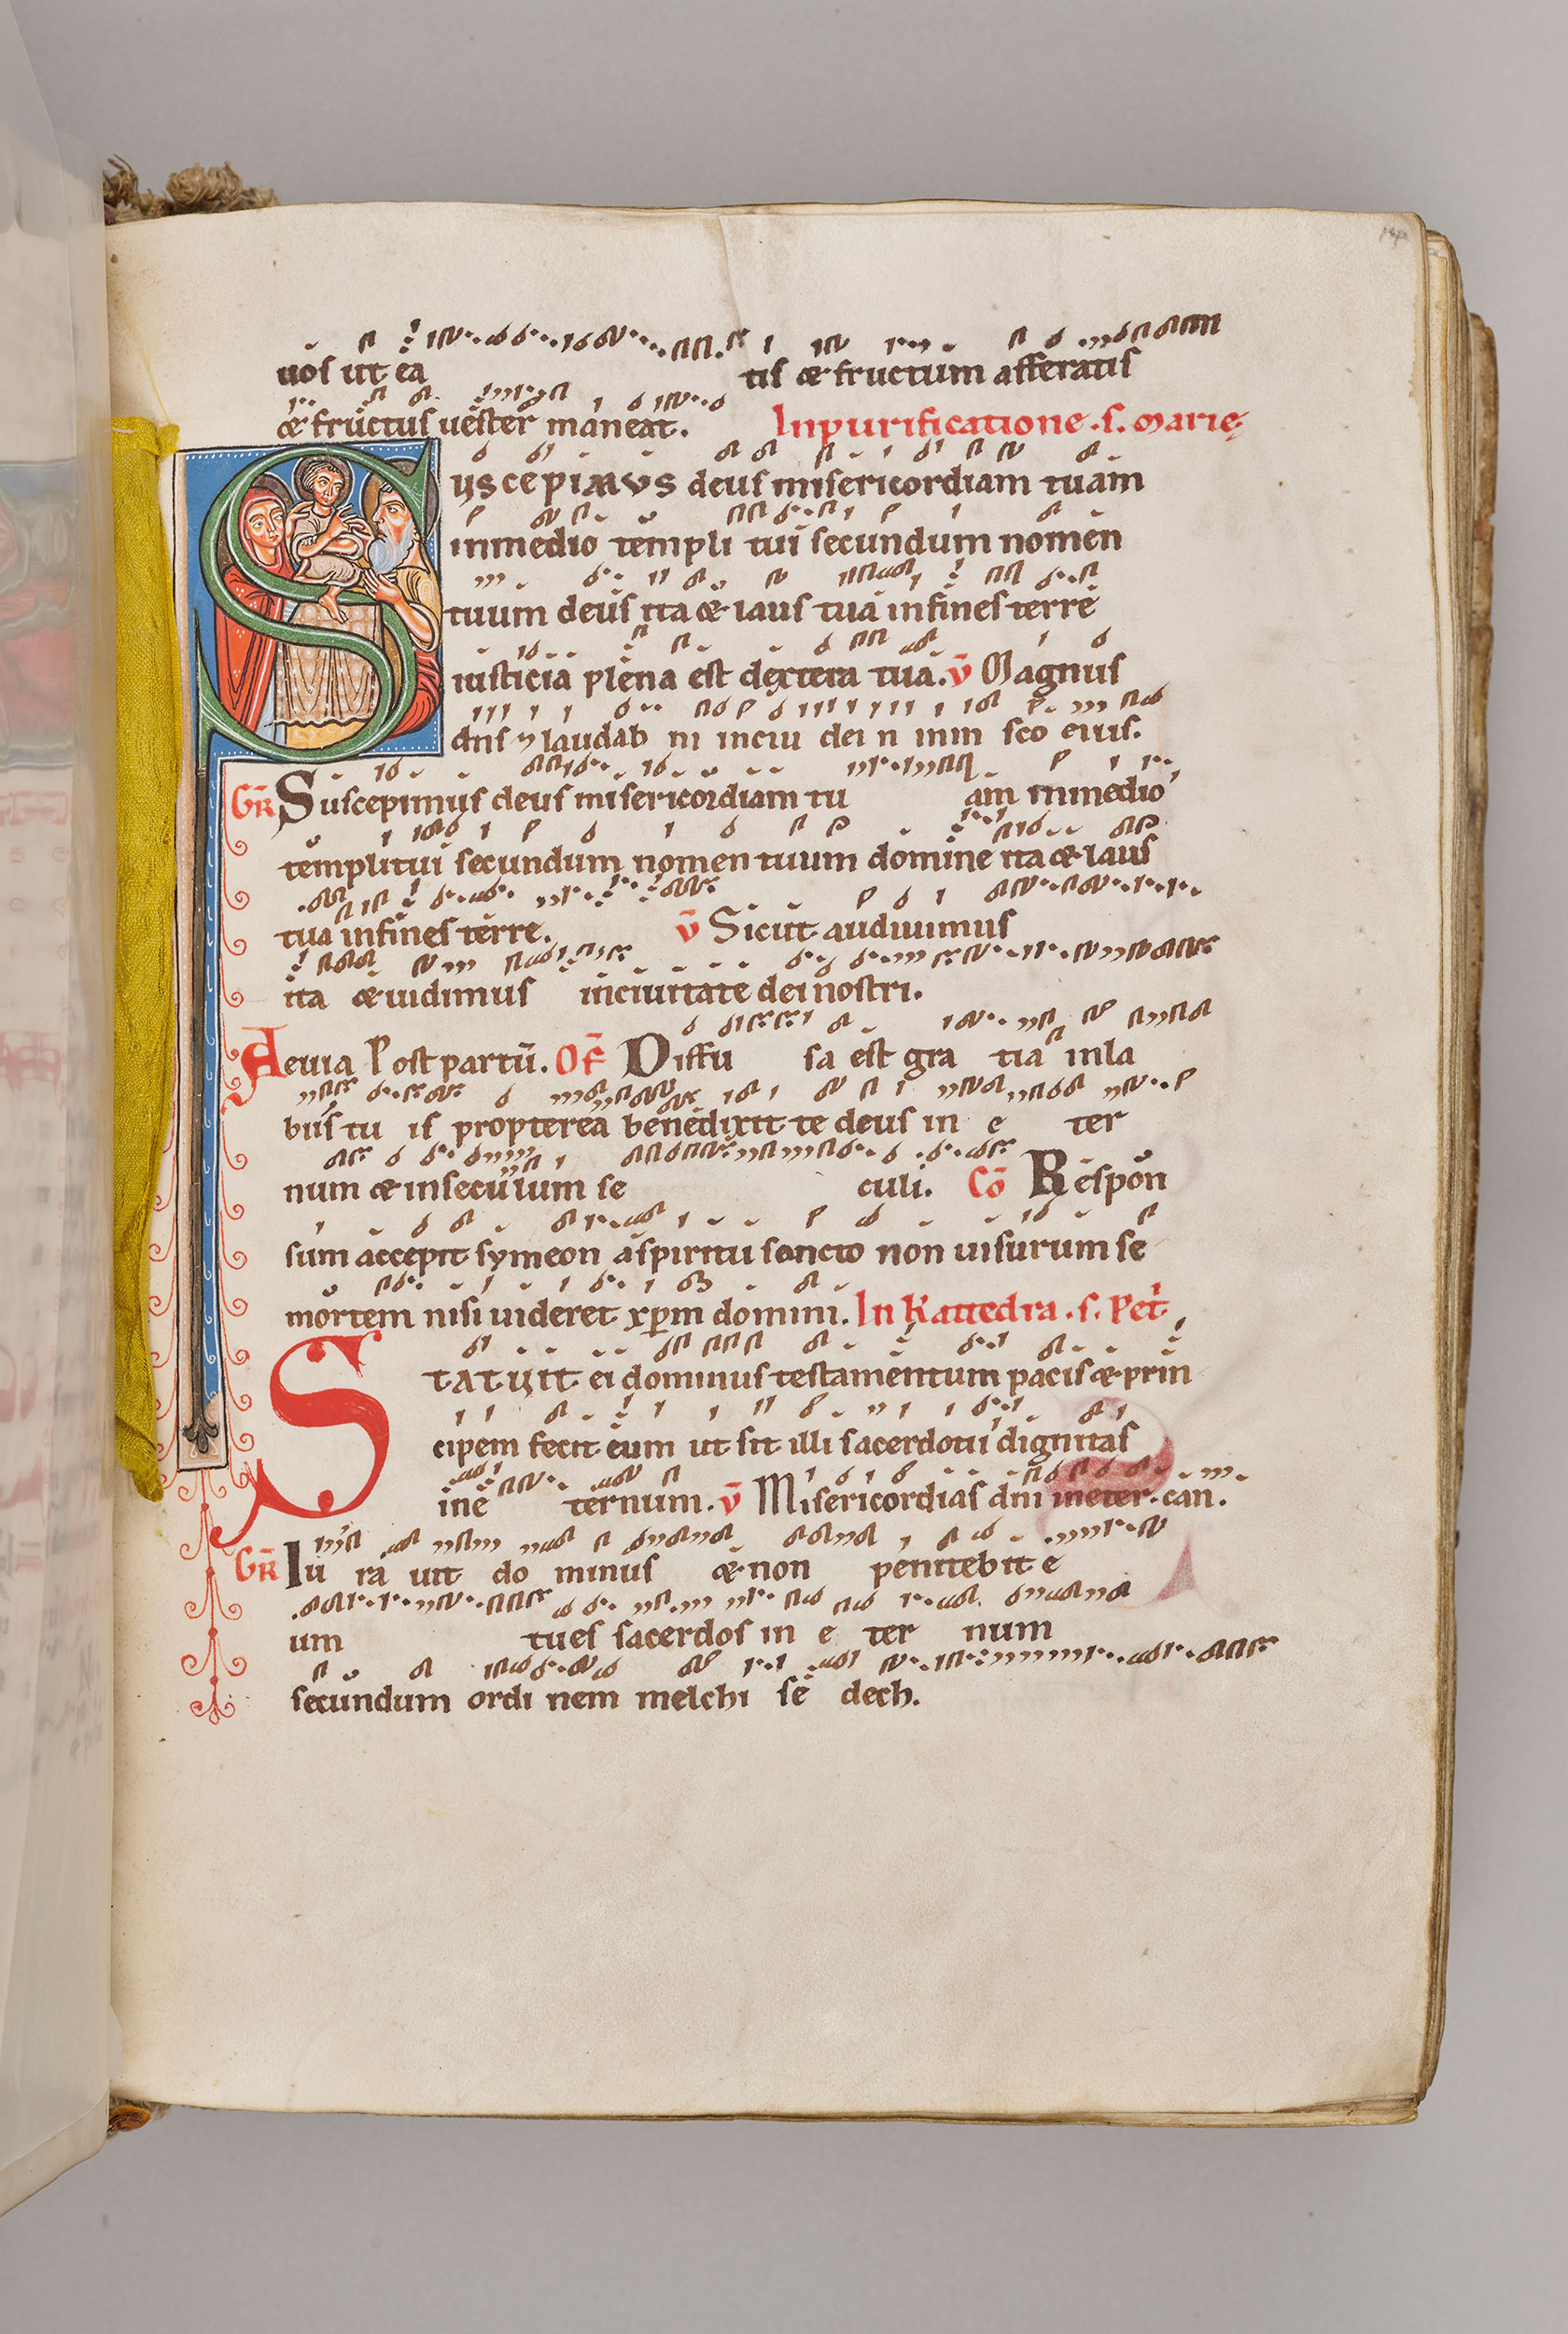 uos ut ea tis & fructum afferatis
& fructus uester maneat. In purificatione .s. Marie
Suscepimus deus misericordiam tuam
in medio templi tui secundum nomen
tuum deus ita & laus tua in fines terre
iusticia plena est dextera tua. V̄ Magnus
dn̄s & laudab ni in ciui dei n in m sco eius.
GR̄ Suscepimus deus misericordiam tu am in medio
templi tui secundum nomen tuum domine ita & laus
tua in fines terre. V̄ Sicut audiuimus
ita & uidimus in ciuitate dei nostri.
Aeuia Post partū. OF̄ Diffu sa est gra tia in la
biis tu is propterea benedixit te deus in e ter
num & in seculum se culi. Cō Respon
sum accepit symeon a spiritu sancto non uisurum se
mortem nisi uideret xp̄m domini. In Kattedra .s. Pet
Statuit ei dominus testamentum pacis & prin
cipem fecit eum ut sit illi sacerdotii dignitas
in e ternum. V̄ Misericordias dn̄i in eter. can.
GR̄ Iu ra uit do minus & non penitebit e
um tu es sacerdos in e ter num
secundum ordi nem melchi se dech.